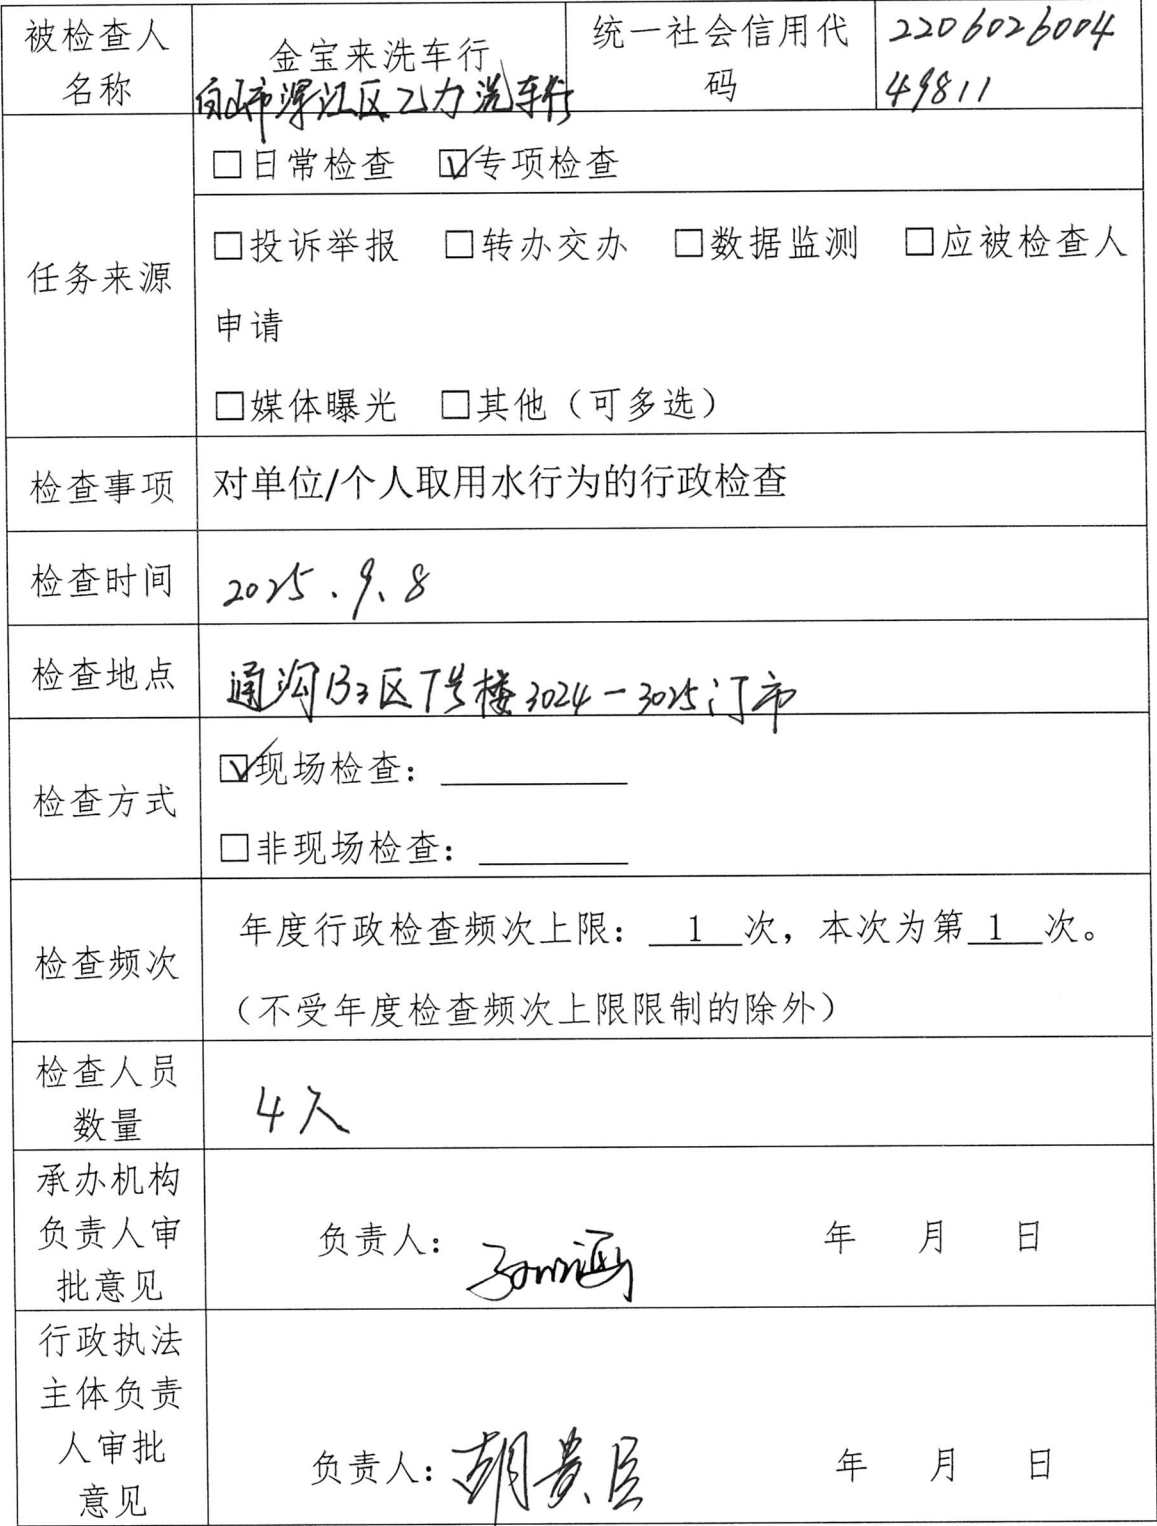 被检查人
名称
金宝来洗车行
白山市浑江区乙力洗车行
统一社会信用代
码
2206026004
49811
任务来源
□日常检查 ☑专项检查
□投诉举报 □转办交办 □数据监测 □应被检查人
申请
□媒体曝光 □其他（可多选）
检查事项
对单位/个人取用水行为的行政检查
检查时间
2025.9.8
检查地点
通沟B3区7号楼3024一3025门市
检查方式
☑现场检查：
□非现场检查：
检查频次
年度行政检查频次上限： 1 次，本次为第 1 次。
（不受年度检查频次上限限制的除外）
检查人员
数量
4人
承办机构
负责人审
批意见
负责人： 年 月 日
行政执法
主体负责
人审批
意见
负责人：胡贵臣 年 月 日